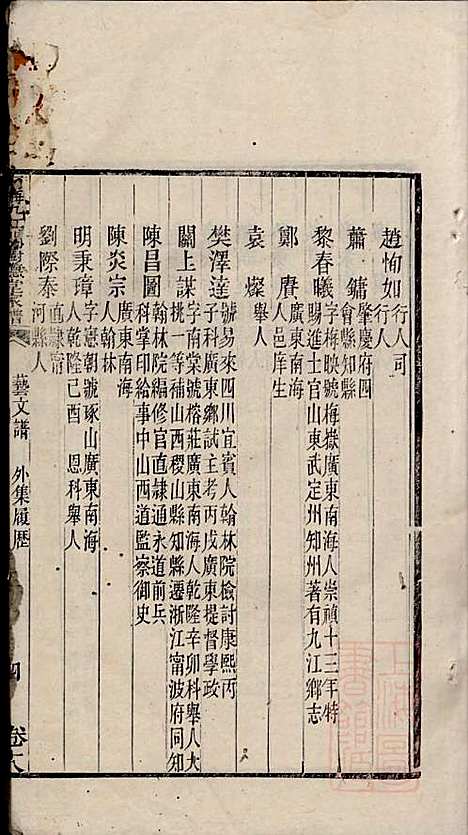 趙恂如行人司
行人
蕭鏞肇慶府四
會縣知縣
黎春曦字梅映號梅嶽廣東南海人崇禎十三年特
賜進士官山東武定州知州著有九江鄉志
鄭賡廣東南海
人邑庠生
袁燦舉人
樊澤達號易來四川宜賓人翰林院檢討康熙丙
子科廣東鄉試主考丙戌廣東提督學政
關上謀字南棠號榕莊廣東南海人乾隆辛卯科舉人大
挑一等補山西稷山縣知縣遷浙江甯波府同知
陳昌圖翰林院編修官直隷通永道前兵
科掌印給事中山西道監察御史
陳炎宗廣東南海
人翰林
明秉璋字憲朝號琢山廣東南海
人乾隆己酉 恩科舉人
劉際泰直隷甯
河縣人
藝文譜 外集履歷
四
卷十八